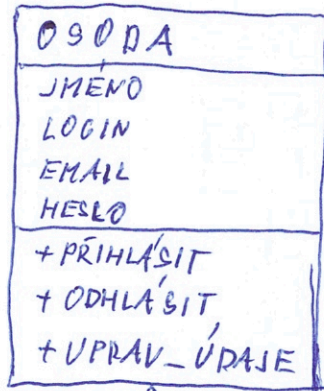 OSOBA
JMÉNO
LOGIN
EMAIL
HESLO
+ PŘIHLÁSIT
+ ODHLÁSIT
+ UPRAV_ÚDAJE